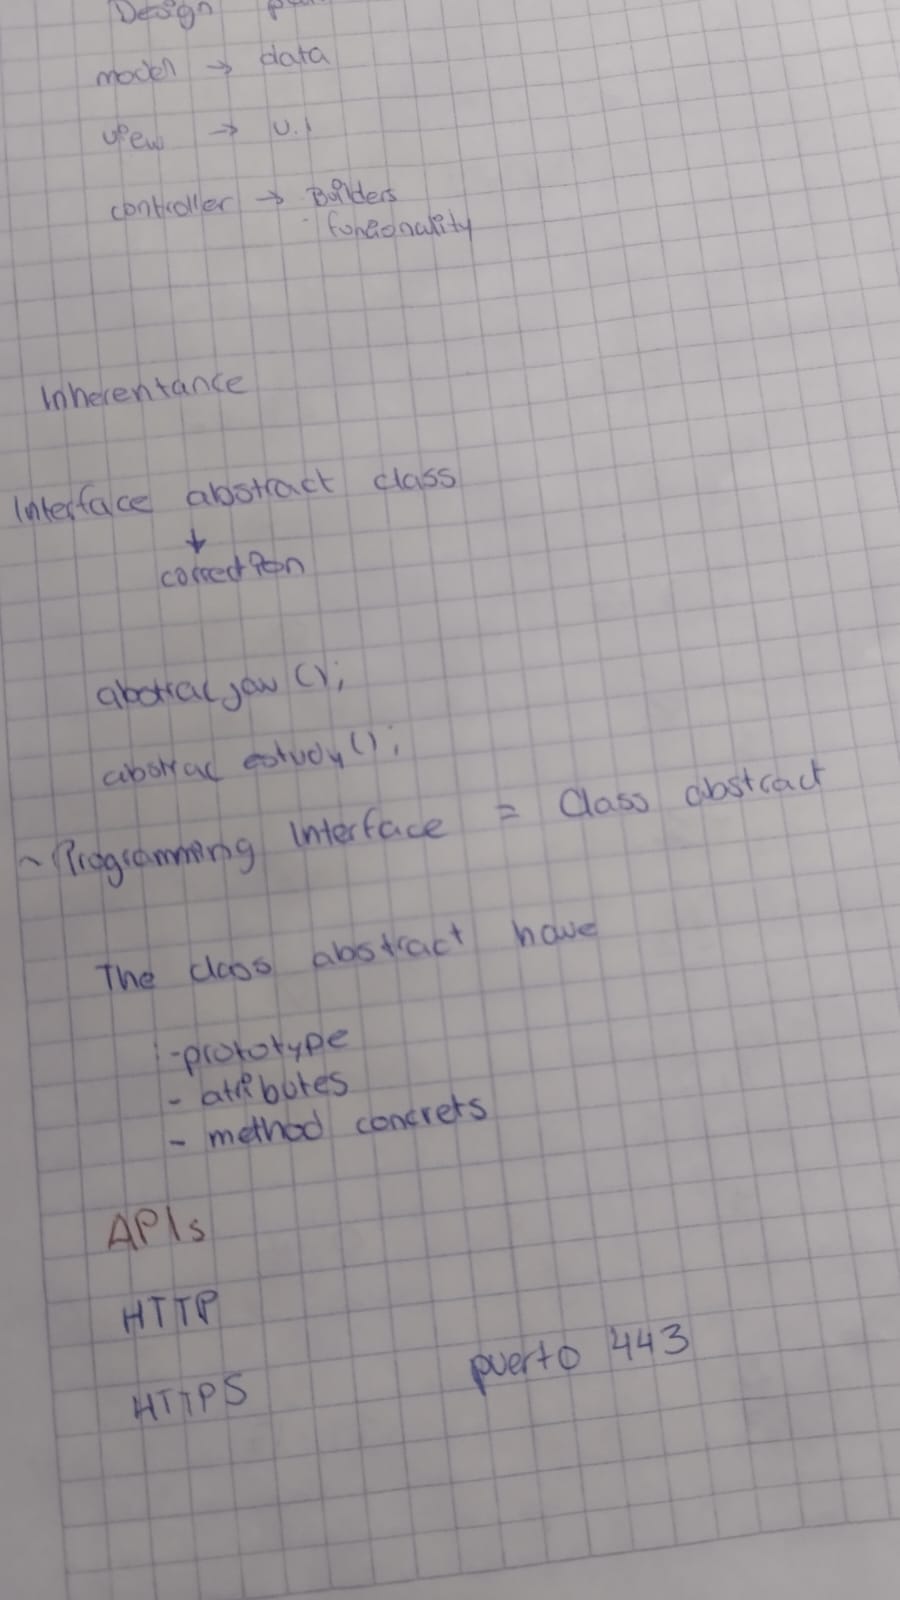 Design
model → data
view → U.I
controller → Builders
funcionality
Inherentance
Interface abstract class
↓
correction
abstrac jow ();
abstrac estudy();
~ Programming Interface = Class abstract
The class abstract have
- prototype
- atributes
- method concrets
APIs
HTTP
HTTPS puerto 443